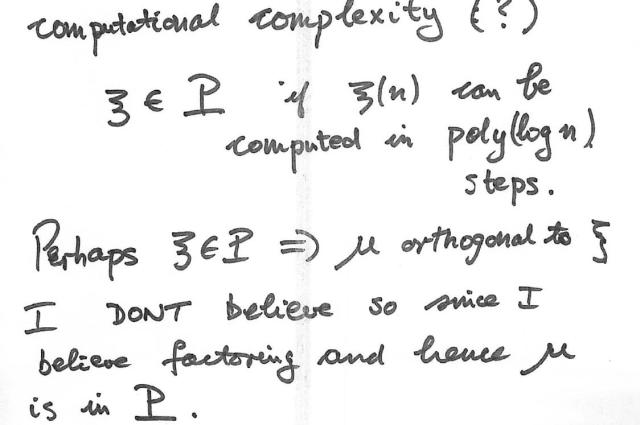 computational complexity (?)
ξ ∈ P if ξ(n) can be
computed in poly(log n)
steps.
Perhaps ξ ∈ P ⇒ μ orthogonal to ξ
I DONT believe so since I
believe factoring and hence μ
is in P.